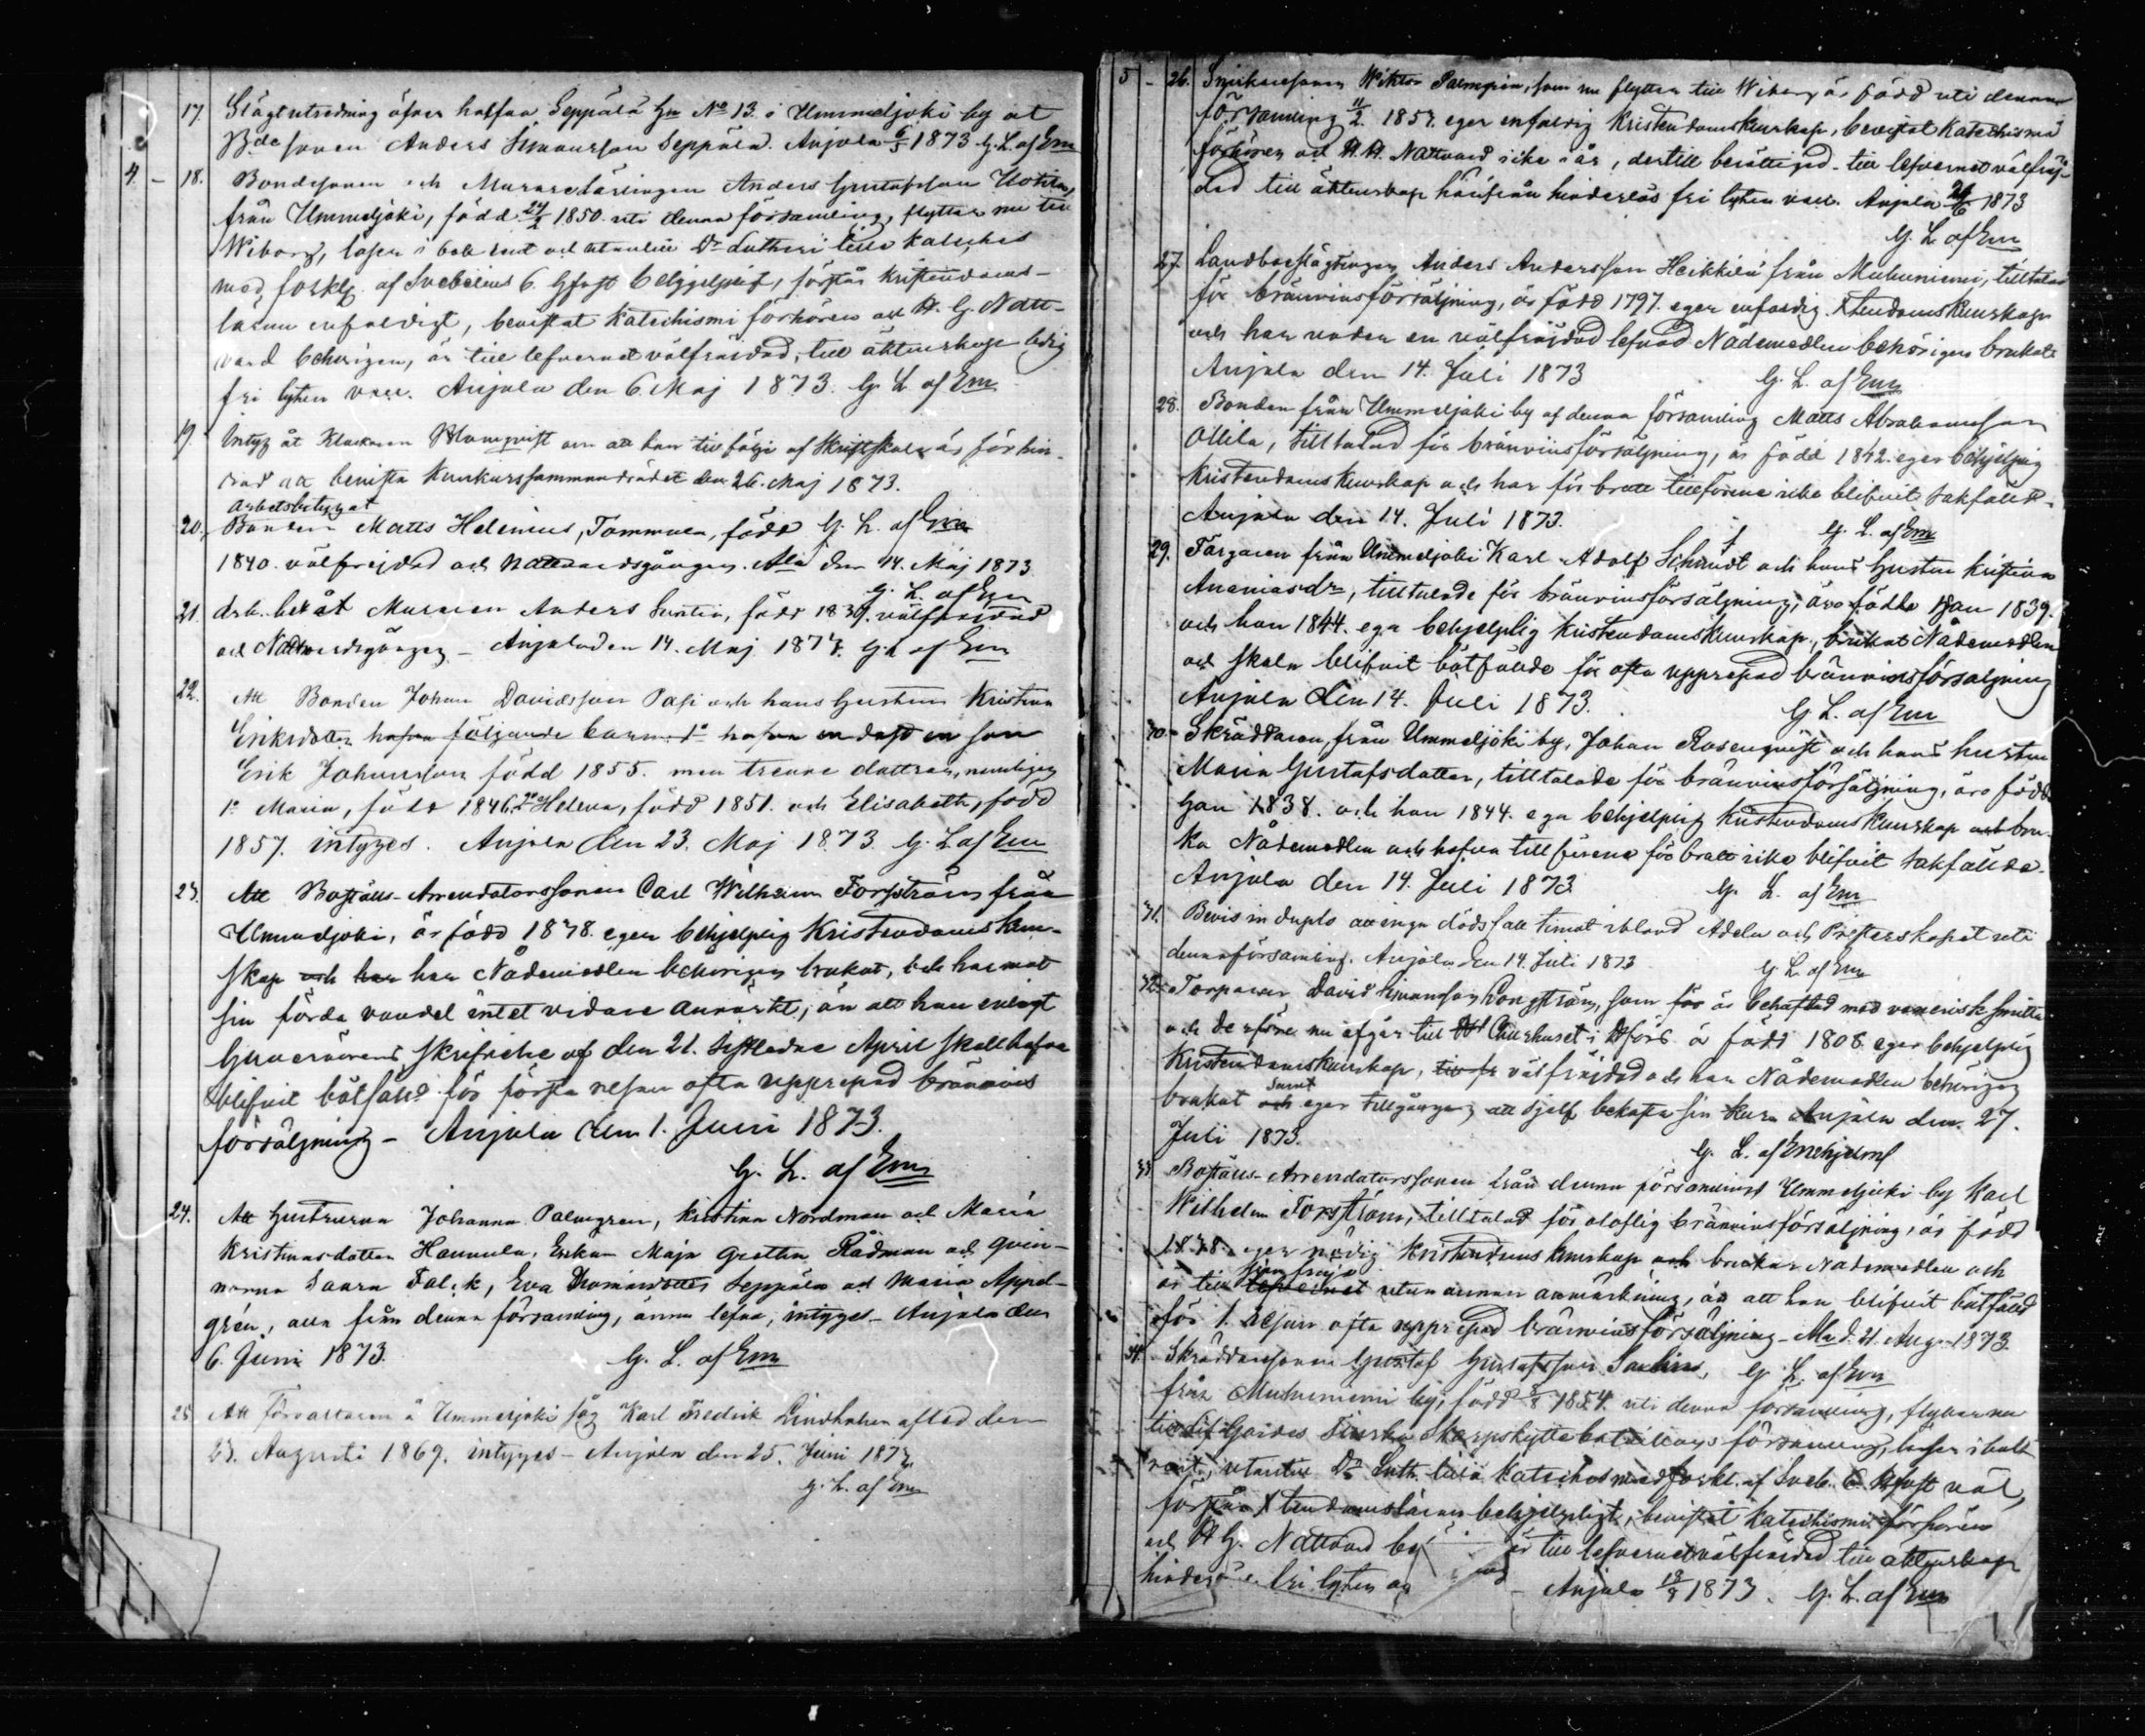 17. Slägtutredning öfver halfva Seppälä Hn No 13. i Ummeljoki by åt
Bde sonen Anders Simonsson Seppälä. Anjala 6/5 1873 G. L. af Em
4. - 18. Bondesonen och Murarelärlingen Anders Gustafsson
från Ummeljoki, född 24/2 1850. uti denna församling, flyttar nu till
Wiborg, läser i bok rent och utantill Dr Lutheri lilla kateches
med förkl. af Svebelius 6. Hfvst behjelpligt, förstår kristendoms-
läran enfaldigt, bevistat Katechismi förhören och H. H. Natt-
vard behörigen, är till lefvernet välfräjdad, till äktenskap ledig
fri lyten vacc. Anjala den 6 Maj 1873. G. L. af Em
19. Intyg åt Klockaren Blomqvist om att han till följe af Skriftskola är förhin-
drad att bevista Konkurssammanträdet den 26. Maj 1873.
arbetsbetyg åt
20. Bonden Matts Helenius, Tammela, född G. L. af Em
1840. välfrejdad och nattvardsgången. Ala den 14. Maj 1873
G. L. af Em
21. arb. bet åt Muraren Anders Suntio, född 1839. välfräjdad
och Nattvardsgången - Anjala den 14. Maj 1873. G. L. af Em
22. Att Bonden Johan Davidsson Pasi och hans hustru Kristina
Eriksdotter hafva följande barn: 1o hafva endast en son
Erik Johansson född 1855. men trenne döttrar, nemligen
1o Maria, född 1846. 2o Helena, född 1851. och Elisabeth, född
1857. intyges. Anjala den 23. Maj 1873. G. L. af Em
23. Att Boställs-Arrendatorssonen Carl Wilhelm Forsström från
Ummeljoki, är född 1838. eger behjelplig Kristendoms kun-
skap och har har Nådemedlen behörigen brukat, och har mot
sin förda vandel intet vidare anmärkt, än att han enligt
Guvernörens skrifvelse af den 21. sistledne April skall hafva
blifvit bötfälld för första resan ofta upprepad bränvins
försäljning - Anjala den 1. Juni 1873.
G. L. af Em
24. Att Hustrurna Johanna Palmgren, Kristina Nordman och Maria
Kristiansdotter Hannula, Enkan Maja Gretha Rådman och qvin-
norna Saara Falck, Eva Thomasdotter Seppälä och Maria Appel-
gren, alla från denna församling, ännu lefva, intyges - Anjala den
6. Juni 1873. G. L. af Em
25. Att Förvaltaren å Ummeljoki såg Karl Fredrik Lindholm aflled den
23. Augusti 1869. intyges - Anjala den 25. Juni 1873.
G. L. af Em
5 - 26. Snickaresonen Wiktor Palmgren, som nu flyttar till Wiborg är född uti denna
församling 11/2 1857. eger enfaldig Kristendomskunskap, bevistat Katechismi
förhören och H. H. Nattvard icke i år, dertill berättigad - till lefvernet välfräj-
dad till äktenskap härifrån hinderlös fri lyten vacc. Anjala 26/6 1873
G. L. af Em
27. Landboeslägtingen Anders Andersson Heikkilä från Muhuniemi, tilltalad
för bränvinsförsäljning, är född 1797. eger enfaldig Xtendomskunskap
och har under en välfräjdad lefnad Nådemedlen behörigen brukat
Anjala den 14. Juli 1873 G. L. af Em
28. Bonden från Ummeljoki by af denna församling Matts Abrahamsson
Ollila, tilltalad för bränvinsförsäljning, är född 1842. eger behjelplig
Kristendomskunskap och har för brott tillförene icke blifvit sakfälld.
Anjala den 14. Juli 1873. G. L. af Em
29. Färgaren från Ummeljoki Karl Adolf Schmidt och hans hustru Kristina
Ananiasdr, tilltalade för bränvinsförsäljning, äro födde Han 1839.
och hon 1844. ega behjelplig Kristendomskunskap, brukat Nådemedlen
och skola blifvit bötfällde för ofta upprepad bränvinsförsäljning
Anjala den 14. Juli 1873. G. L. af Em
30. Skräddaren, från Ummeljoki by, Johan Rosenqvist och hans hustru
Maria Gustafsdotter, tilltalade för bränvinsförsäljning, äro födde
Han 1838. och hon 1844. ega behjelplig Kristendoms kunskap och bru-
ka Nådemedlen och hafva tillförene för brott icke blifvit sakfällde.
Anjala den 14. Juli 1873. G. L. af Em
31. Bevis in duplo att inga dödsfall timat ibland Adeln och Presterskapet uti
denna församling. Anjala den 14. Juli 1873 G. L. af Em
32. Torparen David Simonsson Longström, som för är behäftad med venerisk smitta
och derföre nu afgår till Churhuset i Dfors är född 1808. eger behjelplig
Kristendomskunskap, välfräjdad och har Nådemedlen behörigen
brukat och samt eger tillgångar att sjelf bekosta sin kur. Anjala den 27.
Juli 1873. G. L. af Enehjelm
33. Boställs-Arrendatorssonen från denna församling Ummeljoki by Karl
Wilhelm Forsström, tilltalad för olaflig bränvinsförsäljning, är född
1838. eger nödig Kristendoms kunskap och brukar Nådemedlen och
är till lefvernet utan annan anmärkning, än att han blifvit bötfälld
för 1. resan ofta upprepad bränvinsförsäljning - Ala d. 21. Aug. 1873.
34. Skräddaresonen Gustaf Gustafsson Saxlin, G. L. af Em
från Muhuniemi by, född 8/8 1854. uti denna församling, flyttar nu
till Lif Gardes Finska Skarpskyttebataillons församling, läser i bok
rent, utantill Dr Luth. lilla Kateches med förkl. af Sveb. 6. Hfvst väl,
förstår Xtendomsläran behjelpligt, bevistat Katechismi förhören
och H. H. Nattvard be är till lefvernet välfräjdad till äktenskap
hinders fri lyten - Anjala 18/8 1873. G. L. af Em